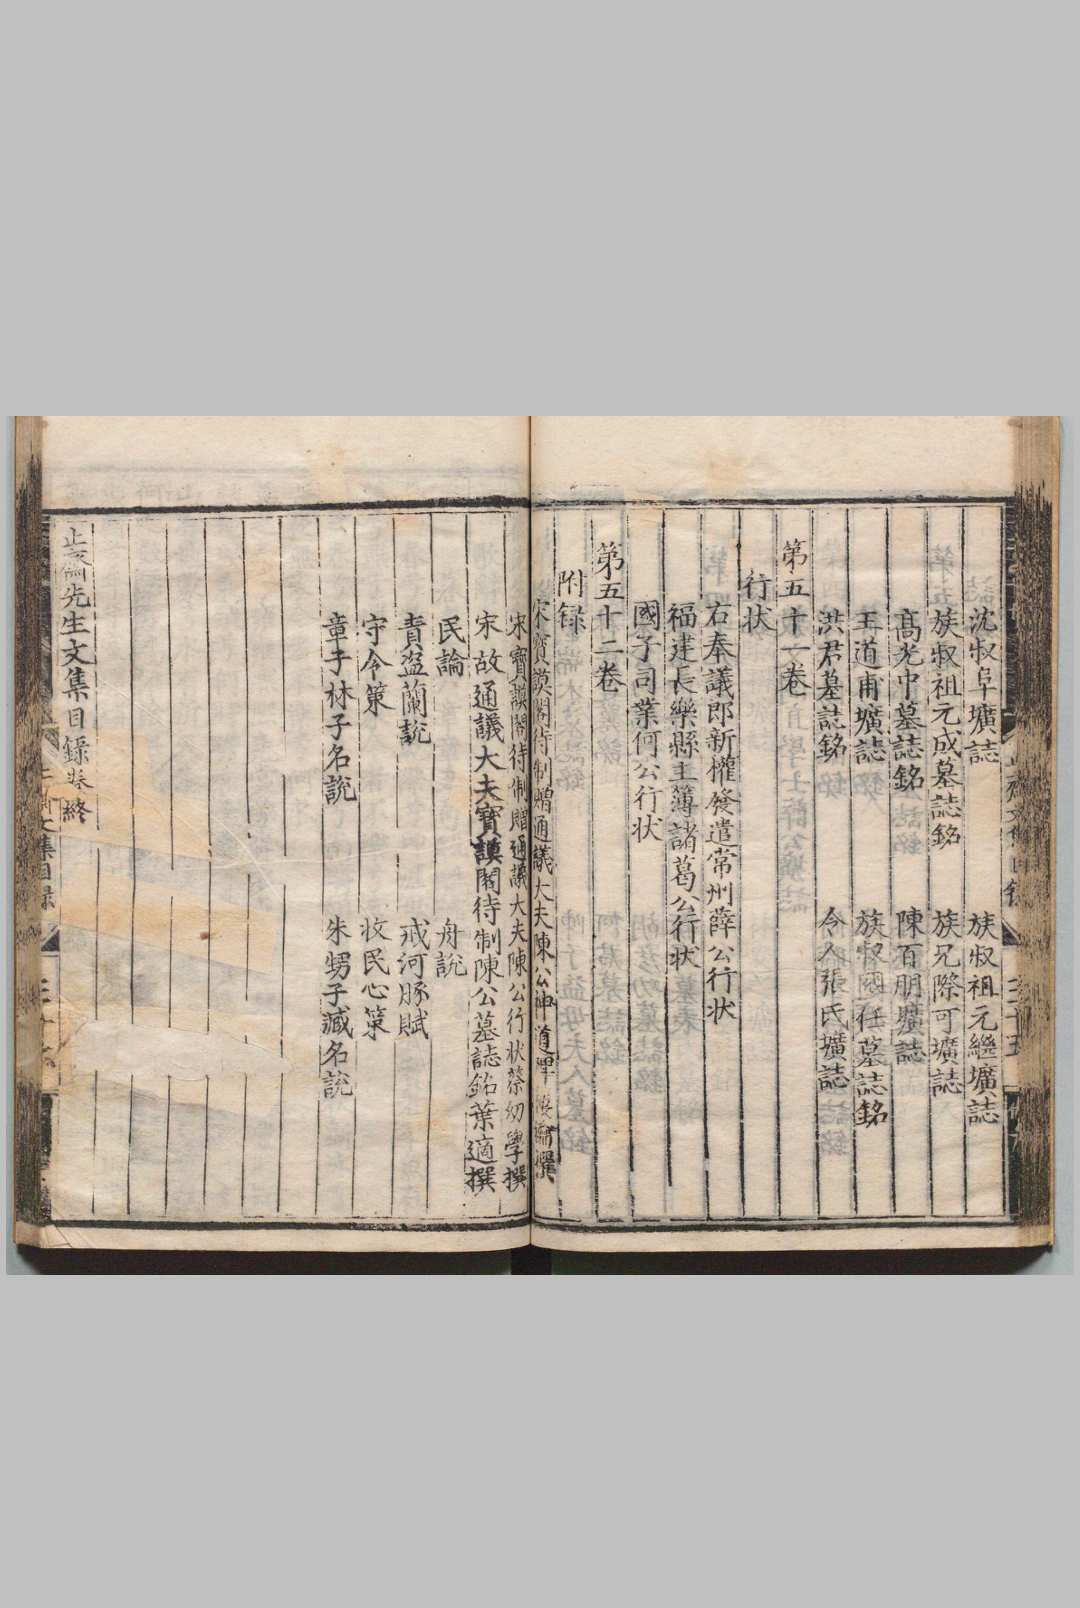 沈叔阜壙誌　族叔祖元繼壙誌
族叔祖元成墓誌銘　族兄際可壙誌
髙光中墓誌銘　陳百朋壙誌
王道甫壙誌　族叔國任墓誌銘
洪君墓誌銘　令人張氏壙誌
第五十一卷
行状
右奉議郎新權發遣常州薛公行状
福建長樂縣主簿諸葛公行状
國子司業何公行状
第五十二卷
附録
宋寳謨閣待制贈通議大夫陳公神道碑樓鑰撰
宋寳謨閣待制贈通議大夫陳公行状蔡幼學撰
宋故通議大夫寳謨閣待制陳公墓誌銘葉適撰
民論　舟說
責盗蘭說　戒河豚賦
守令策　收民心策
章子林子名說　朱甥子臧名說
止齋先生文集目録終